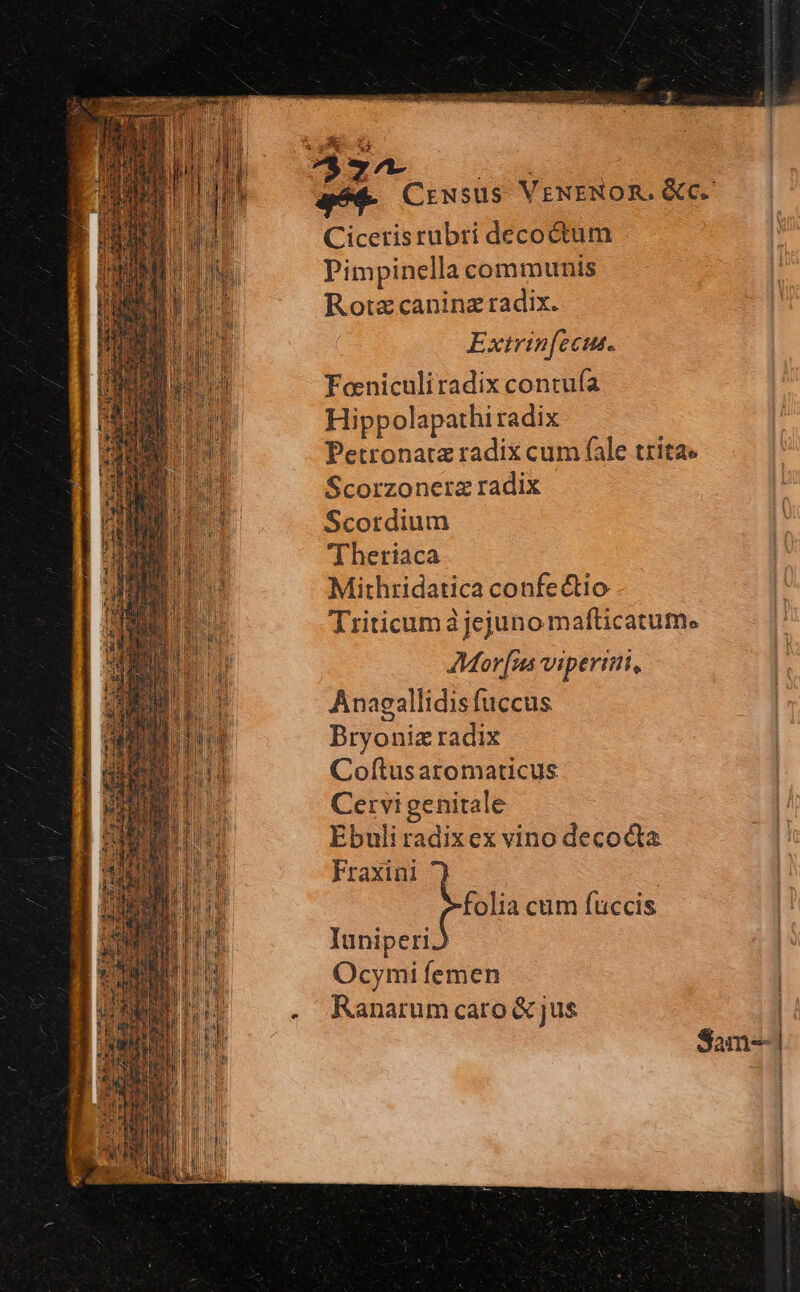 372
Census Venenor. &c.
Ciceris rubri decoctum
Pimpinella communis
Rotæ caninæ radix.
Extrinſecus.
Fœniculi radix contuſa
Hippolapathi radix
Petronatæ radix cum ſale trita.
Scorzoneræ radix
Scordium
Theriaca
Mithridatica confectio
Triticum à jejuno maſticatum.
Morſus viperini,
Anagallidis ſuccus
Bryoniæ radix
Coſtus aromaticus
Cervi genitale
Ebuli radix ex vino decocta
Fraxini
folia cum ſuccis
Iuniperi
Ocymi ſemen
Ranarum caro & jus
Sam-